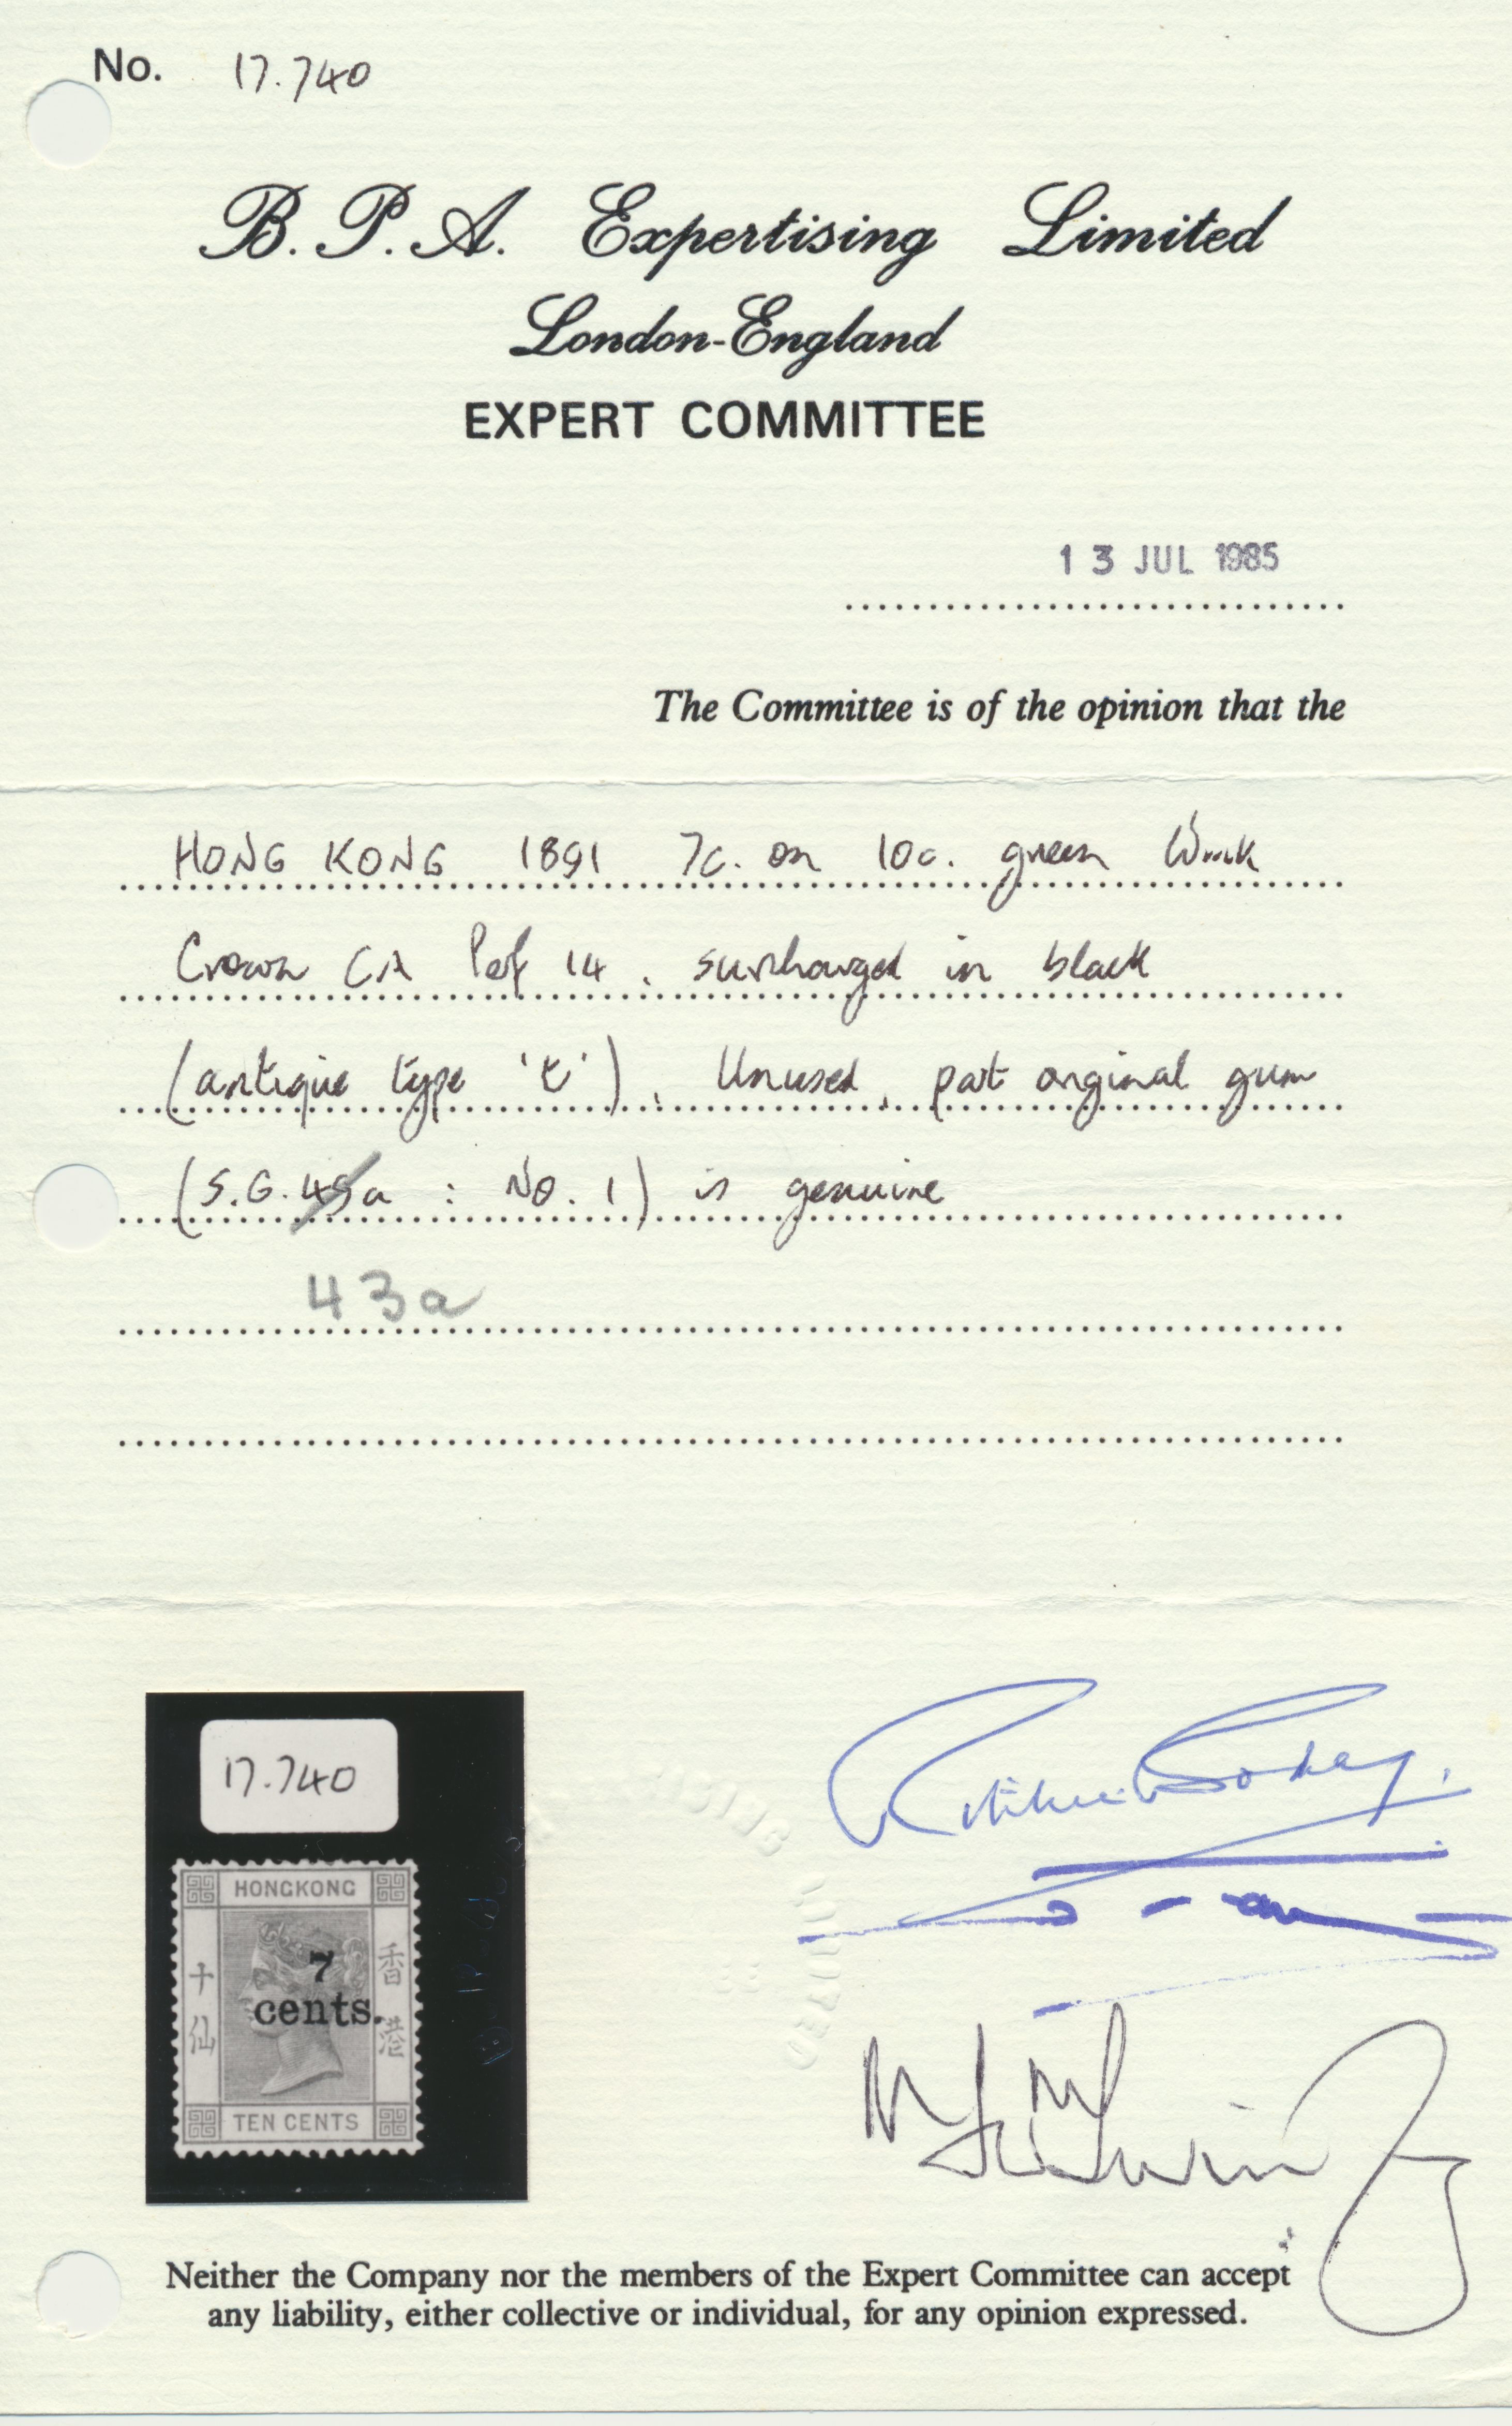 No. 17.740
B. P. A. Expertising Limited
London-England
EXPERT COMMITTEE
13 JUL 1985
The Committee is of the opinion that the
HONG KONG 1891 7c. on 10c. green Wmk
Crown CA Perf 14, surcharged in black
(antique type 't'), Unused, part original gum
(S.G. 45a : No. 1) is genuine
43a
17.740
HONGKONG
十仙
7
cents.
香港
TEN CENTS
Neither the Company nor the members of the Expert Committee can accept
any liability, either collective or individual, for any opinion expressed.